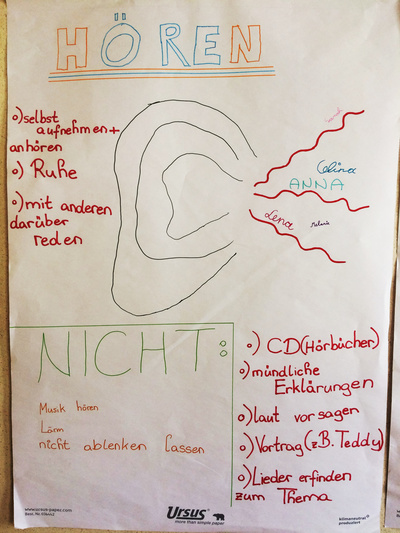 HÖREN
o) selbst
aufnehmen +
anhören
o) Ruhe
o) mit anderen
darüber
reden
Celina
ANNA
Lena
Melanie
NICHT:
Musik hören
Lärm
nicht ablenken lassen
o) CD (Hörbücher)
o) mündliche
Erklärungen
o) laut vorsagen
o) Vortrag (z.B. Teddy)
o) Lieder erfinden
zum Thema
www.ursus-paper.com
Ursus
more than simple paper
klimaneutral
produziert